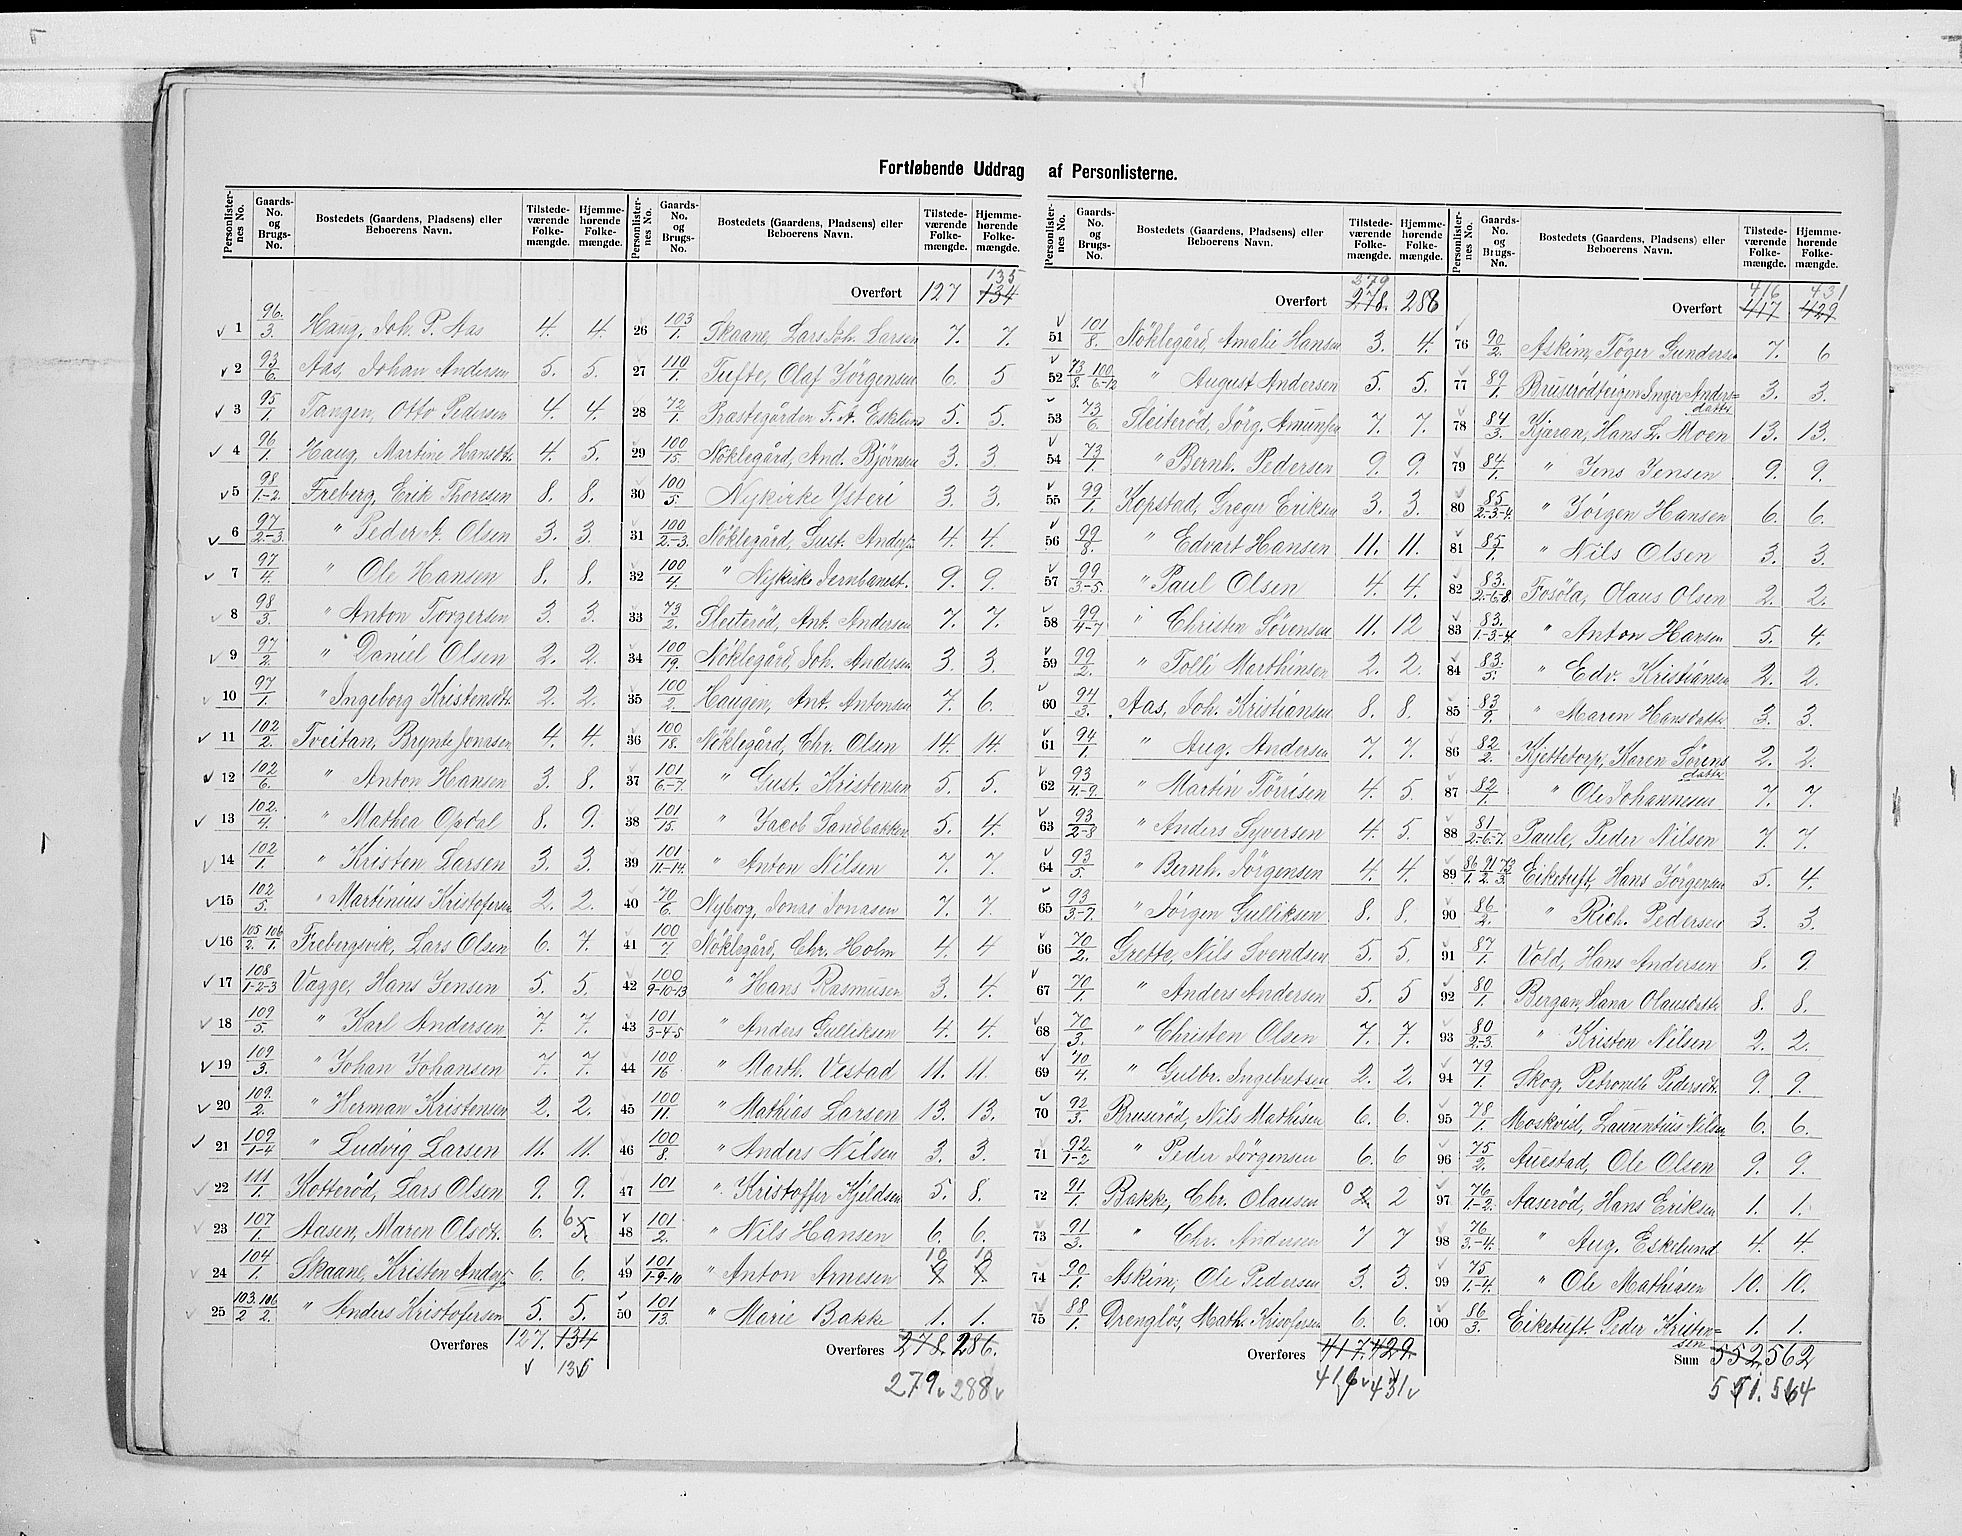 Fortløbende Uddrag af Personlisterne.
Personlister-nes No. Gaards-No. og Brugs-No. Bostedets (Gaardens, Pladsens) eller Beboerens Navn. Tilstede-værende Folke-mængde. Hjemme-hørende Folke-mængde.
1 96/3. Haug, Joh. P. Aas 4. 4.
2 93/6. Aas, Johan Andersen 5. 5.
3 95/1. Tangen, Otto Pedersen 4. 4.
4 96/1. Haug, Martine Hansdtr. 4. 5.
5 98/1.-2. Freberg, Erik Thoresen 8. 8.
6 97/2.-3. " Peder A. Olsen 3. 3.
7 97/4. " Ole Hansen 8. 8.
8 98/3. " Anton Torgersen 3. 3.
9 97/2. " Daniel Olsen 2. 2.
10 97/1. " Ingeborg Kristensdt. 2. 2.
11 102/2. Tveitan, Brynte Jonasen 4. 4.
12 102/6. " Anton Hansen 3. 8.
13 102./4. " Mathea Opdal 8. 9.
14 102/1. " Kristen Larsen 3. 3.
15 102/5. " Martinius Kristofersen 2. 2.
16 105/2. 106/1. Frebergsvik, Lars Olsen 6. 7.
17 108/1-2-3 Vagge, Hans Jensen 5. 5.
18 109/5. " Karl Andersen 7. 7.
19 109/3. " Johan Johansen 7. 7.
20 109./2. " Herman Kristensen 2. 2.
21 109/1-4 " Ludvig Larsen 11. 11.
22 111/1. Kotterød, Lars Olsen 9. 9.
23 107/1. Aasen, Maren Olsdt. 6. 6 5.
24 104/1. Skaane, Kristen Anders. 6. 6.
25 103./2 106/2. " Anders Kristofersen 5. 5.
Overføres 127. 134
135
Personlister-nes No. Gaards-No. og Brugs-No. Bostedets (Gaardens, Pladsens) eller Beboerens Navn. Tilstede-værende Folke-mængde. Hjemme-hørende Folke-mængde.
135
Overført 127 134
26 103/1. Skaane, Lars Joh. Larsen 7. 7.
27 110/1. Tufte, Olaf Jörgensen 6. 5
28 72/1. Præstegården F. A. Eskelund 5. 5.
29 100/15. Nöklegård, And. Björnsen 3. 3.
30 100/5. Nykirke Ysteri 3. 3.
31 100/2.-3. Nöklegård, Gust. Anders. 4. 4.
32 100/4. " Nykirke Jernbanest. 9. 9.
33 73/2. Sleiterød, Ant. Andersen 7. 7.
34 100/19. Nöklegård, Joh. Andersen 3. 3.
35 100/2. Haugen, Ant. Antonsen 7. 6.
36 100/18. Nöklegård, Chr. Olsen 14. 14.
37 101/6.-7. " Gust. Kristensen 5. 5.
38 101/15. " Jacob Sandbakken 5. 4.
39 101/11.-14. " Anton Nilsen 7. 7.
40 70/6. Nyborg, Jonas Jonasen 7. 7.
41 100/7. Nöklegård, Chr. Holm 4. 4
42 100/9-10-13 " Hans Rasmusen 3. 4.
43 101/3-4-5 " Anders Gulliksen 4. 4.
44 100/16 " Marth. Vestad 11. 11.
45 100/11. " Mathias Larsen 13. 13.
46 100/8. " Anders Nilsen 3. 3.
47 101 " Kristoffer Kjeldsen 5. 8.
48 101/2. " Nils Hansen 6. 6.
49 101/1-9-10 " Anton Arnesen 10 9 10 9
50 101/13. " Marie Bakke 1. 1.
Overføres 278. 286.
279 288
Personlister-nes No. Gaards-No. og Brugs-No. Bostedets (Gaardens, Pladsens) eller Beboerens Navn. Tilstede-værende Folke-mængde. Hjemme-hørende Folke-mængde.
279
Overført 278. 288
51 101/8. Nöklegård, Amalie Hansen 3. 4.
52 73/8. 100/6.-12 " August Andersen 5. 5.
53 73/6. Sleiterød, Jörg. Amunsen 7. 7.
54 73/1. " Bernh. Pedersen 9. 9.
55 99/1. Kopstad, Greger Eriksen 3. 3.
56 99/8. " Edvart Hansen 11. 11.
57 99/3-5. " Paul Olsen 4. 4.
58 99/4-7 " Christen Sörensen 11. 12
59 99/2. " Tolli Marthinsen 2. 2.
60 94/3. Aas, Joh. Kristiansen 8. 8.
61 94/1. " Aug. Andersen 7. 7.
62 93/4.-9. " Martin Törrisen 4. 5
63 93/2-8 " Anders Syversen 4. 5.
64 93/5 " Bernh. Jörgensen 4. 4.
65 93/3-7. " Jörgen Gulliksen 8. 8.
66 70/2. Grette, Nils Svendsen 5. 5.
67 70/1. " Anders Andersen 5. 5
68 70/3. " Christen Olsen 7. 7.
69 70/4. " Gulbr. Ingebretsen 2. 2.
70 92/3. Bruserød, Nils Mathisen 6. 6.
71 92/1-2 " Peder Jörgensen 6. 6
72 91/1. Bakke, Chr. Olausen 0 2. 2
73 91/3. " Chr. Andersen 7 7
74 90/1. Askim, Ole Pedersen 3. 3.
75 88/1. Drenglös, Math. Kristofersen 6. 6.
Overføres 417. 429.
416 431
Personlister-nes No. Gaards-No. og Brugs-No. Bostedets (Gaardens, Pladsens) eller Beboerens Navn. Tilstede-værende Folke-mængde. Hjemme-hørende Folke-mængde.
416 431
Overført 417 429
76 90/2. Askim, Töger Gundersen 7. 6
77 89/1. Bruserødteigen Inger Anders=datter 3. 3.
78 84/3. Kjæran, Hans L. Moen 13. 13.
79 84/1. " Jens Jensen 9. 9.
80 85/2.-3-4. " Jörgen Hansen 6. 6.
81 85/1. " Nils Olsen 3. 3.
82 83./2.-6.-8. Fosöla, Olaus Olsen 2. 2.
83 83./1-3-4. " Anton Hansen 5. 4.
84 83./5. " Edv. Kristiansen 2. 2.
85 83/9. " Maren Hansdatter 3. 3.
86 82/2. Kjettetorp, Karen Sörensdatter 2. 2.
87 82/1. " Ole Johannesen 7. 7.
88 81/2.-6.-7. Paule, Peder Nilsen 7. 7.
89 86/1. 91/2. 73/3. Eiketuft, Hans Jörgensen 5. 4.
90 86/2. " Rich. Pedersen 3. 3.
91 87/1. Vold, Hans Andersen 8. 9.
92 80/1. Bergan, Hana Olausdatter 8. 8.
93 80/2.-3. " Kristen Nilsen 2. 2.
94 79/1. Skog, Petronelle Pedersdt. 9. 9.
95 78/1. Moskvid, Laurentius Nilsen 6. 6.
96 75/2. Auestad, Ole Olsen 9. 9.
97 76/1.-2. Aaserød, Hans Eriksen 1. 1.
98 76/3.-4. " Aug. Eskelund 4. 4.
99 75/1.-4. " Ole Mathisen 10. 10.
100 86/3. Eiketuft. Peder Kristen=sen 1. 1.
Sum 552 562
551. 564